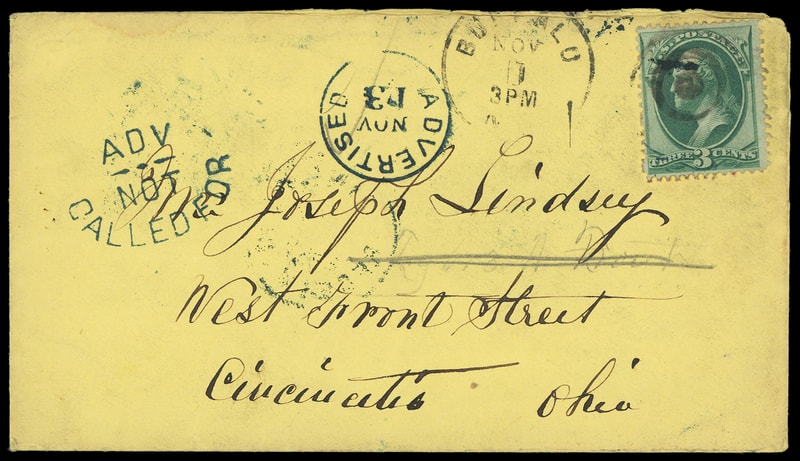 BUFFALO
NOV
11
3PM
U.S. POSTAGE
THREE 3 CENTS
ADVERTISED
NOV
ADV
NOT
CALLED FOR
Mr. Joseph Lindsey
West Front Street
Cincinnati Ohio